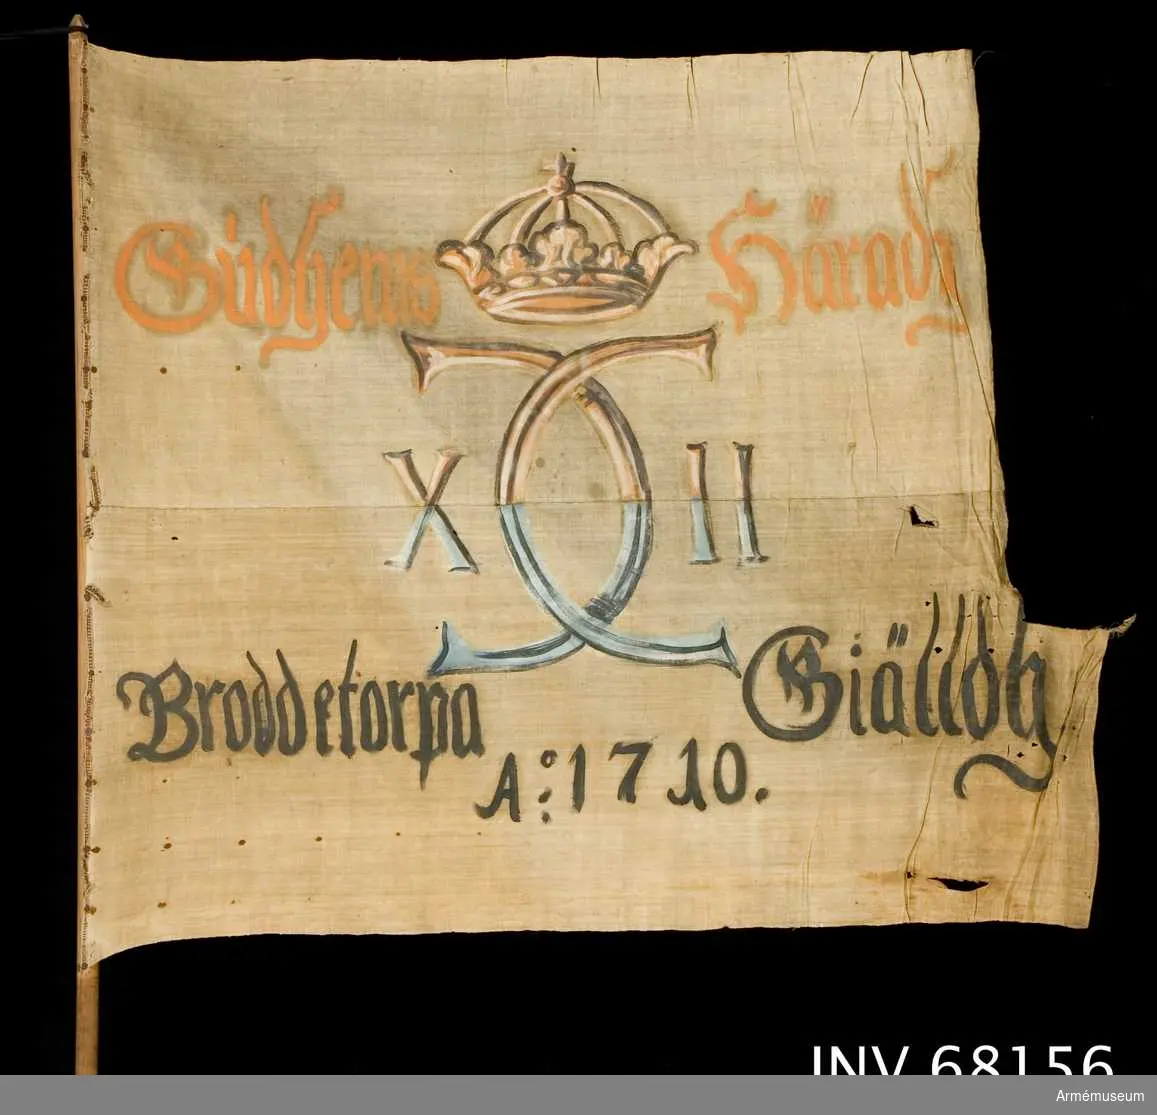 Gùdhems Häradh
X CC II
Broddetorpa Giälldh
Ao: 1710.
INV 68156
Armémuseum